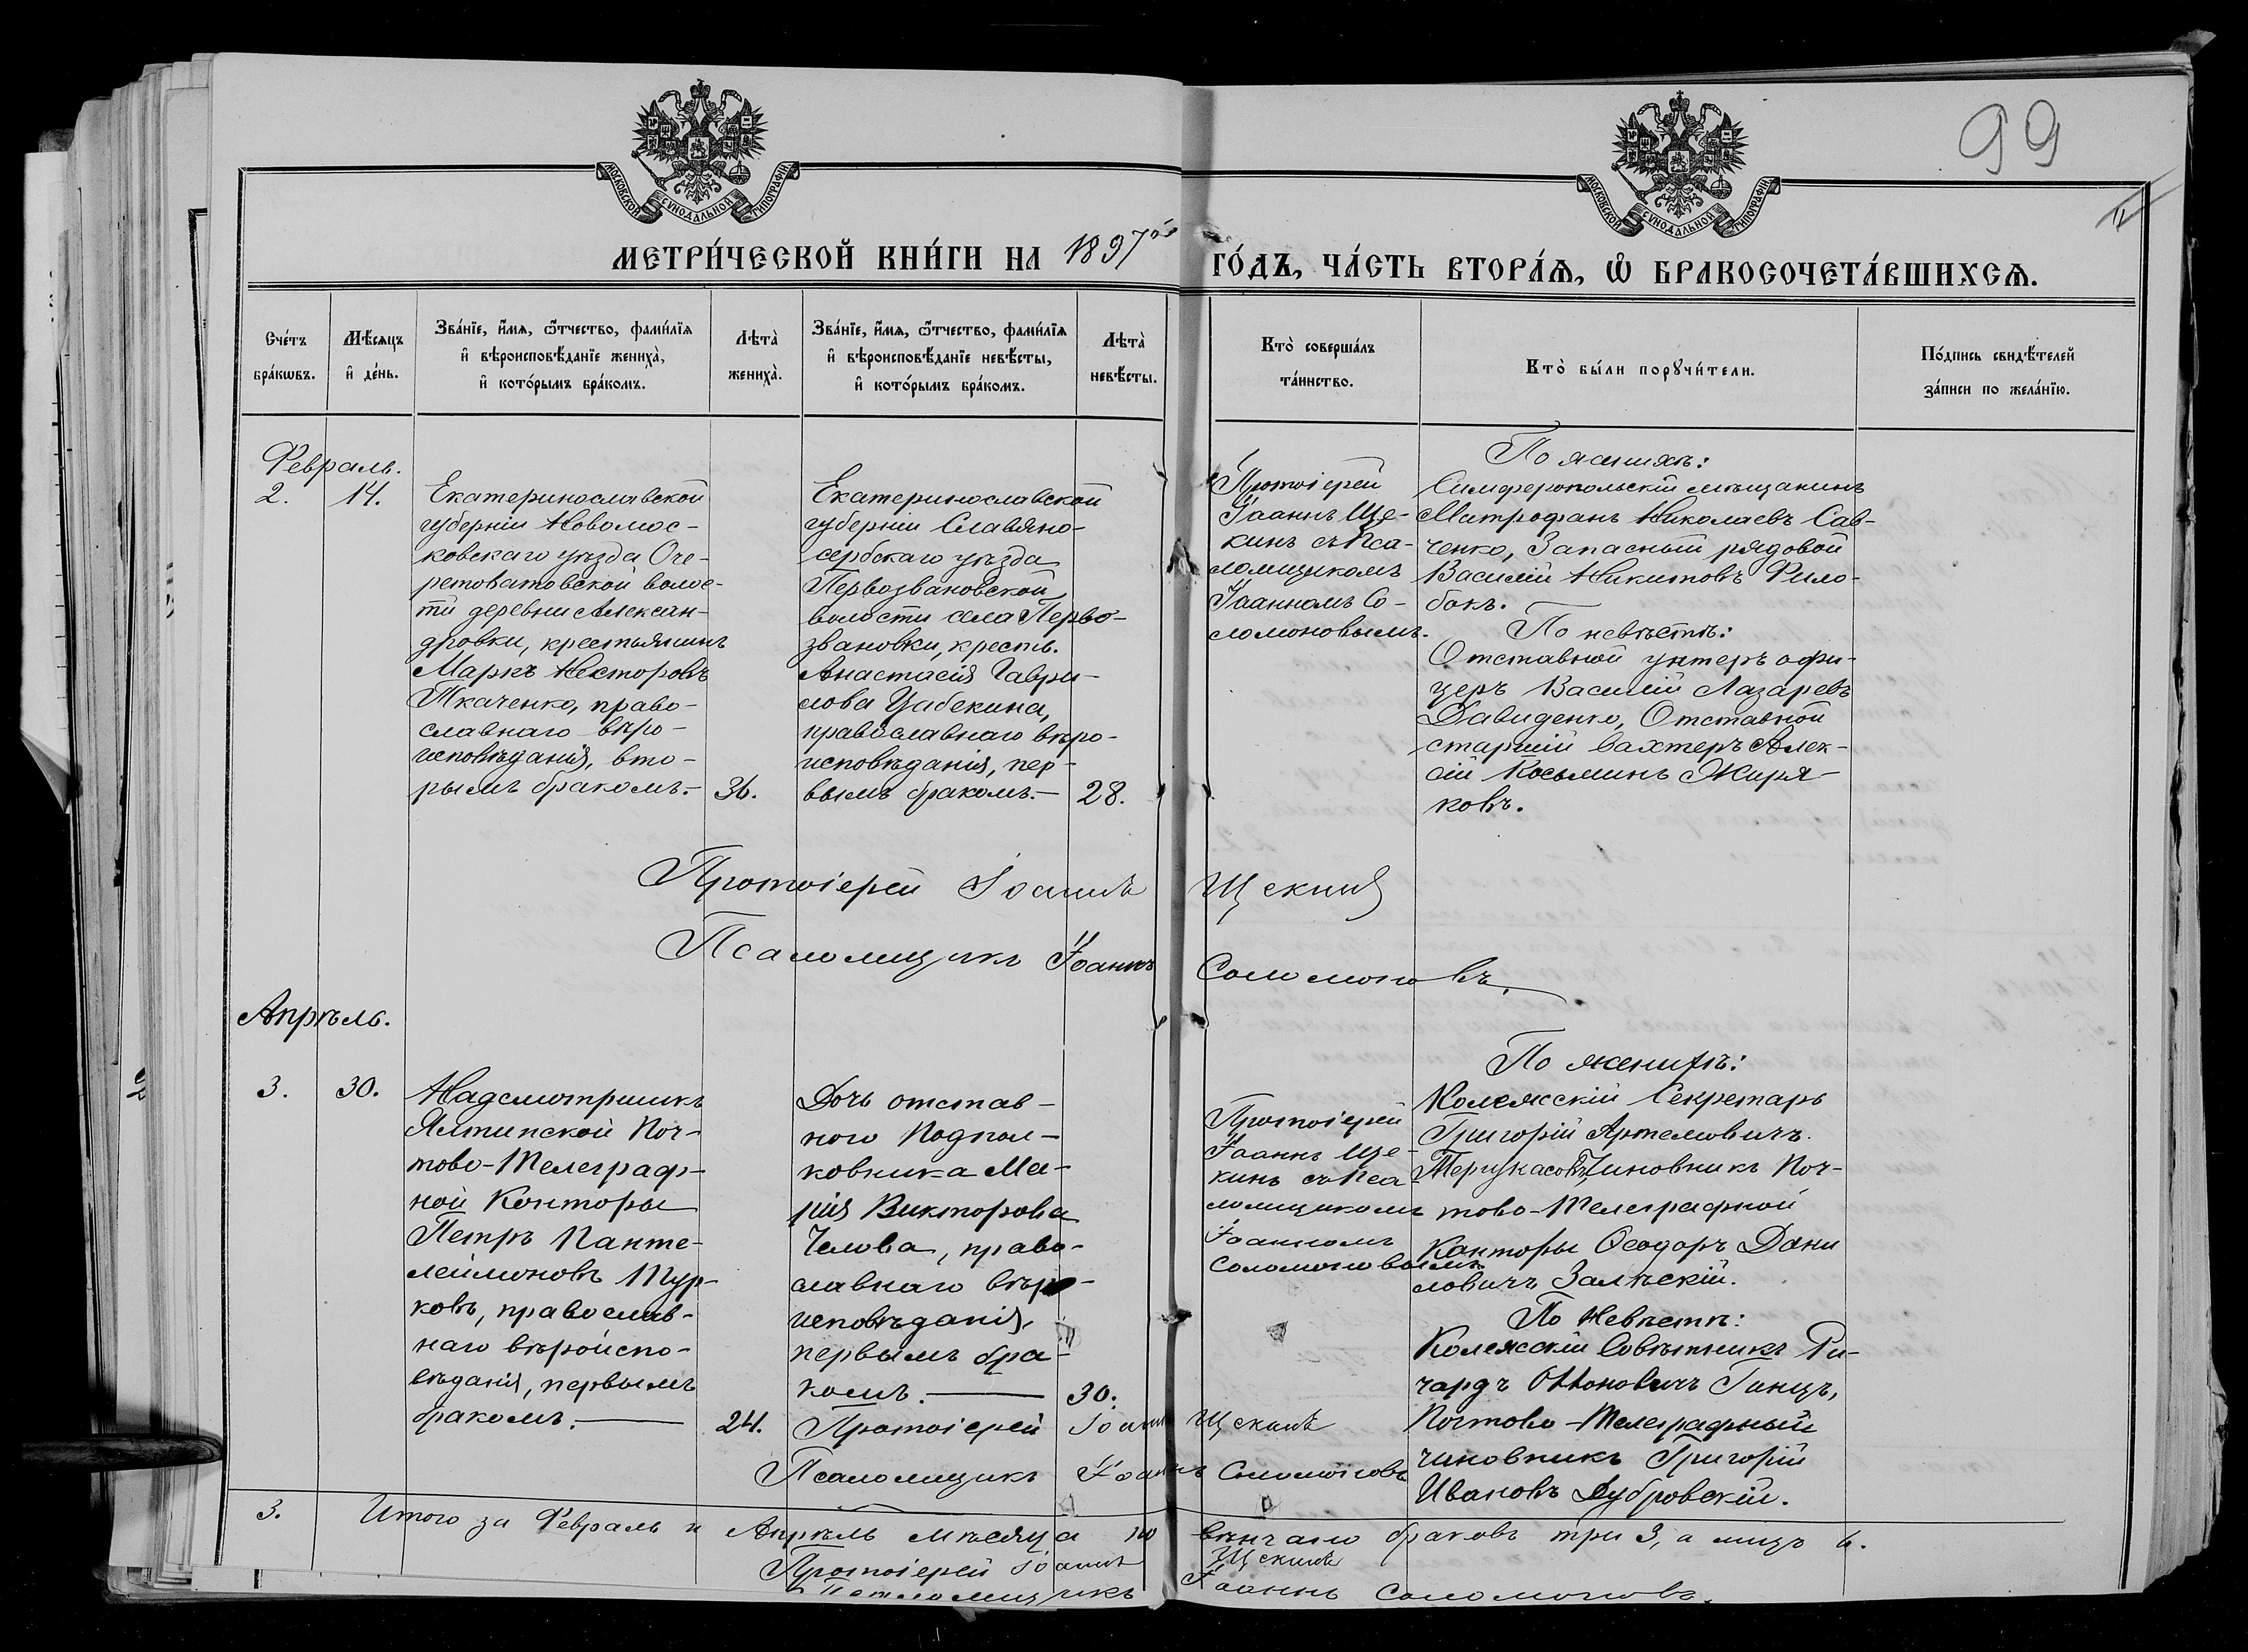 99
МОСКОВСКОЙ СѴНОДАЛЬНОЙ ТИПОГРАФІИ
МОСКОВСКОЙ СѴНОДАЛЬНОЙ ТИПОГРАФІИ
МЕТРИ́ЧЕСКОЙ КНИ́ГИ НА 1897 ГО́ДЪ, ЧА́СТЬ ВТОРА́Ѧ, Ѽ БРАКОСОЧЕТА́ВШИХСѦ.
Сче́тъ
бра́кѡвъ.
Мѣ́сяцъ
и҆ де́нь.
Зва́нїе, и҆́мя, ѻ҆́тчество, фами́лїя
и҆ вѣроисповѣ́данїе жениха̀,
и҆ кото́рымъ бра́комъ.
Лѣта̀
жениха̀.
Зва́нїе, и҆́мя, ѻ҆́тчество, фами́лїя
и҆ вѣроисповѣ́данїе невѣ́сты,
и҆ кото́рымъ бра́комъ.
Лѣта̀
невѣ́сты.
Кто̀ соверша́лъ
та́инство.
Кто̀ бы́ли порꙋчи́тели.
По́дпись свидѣ́телей
за́писи по жела́нїю.
Февраль.
2.
14.
Екатеринославской
губерніи Новомос-
ковскаго уѣзда Оче-
ретоватовской волос-
ти деревни Алексан-
дровки, крестьянинъ
Маркъ Несторовъ
Ткаченко, право-
славнаго вѣро-
исповѣданія, вто-
рымъ бракомъ.-
36.
Екатеринославской
губерніи Славяно-
сербскаго уѣзда
Первозвановской
волости села Перво-
звановки, кресть.
Анастасія Гаври-
лова Цабекина,
православнаго вѣро-
исповѣданія, пер-
вымъ бракомъ.-
28.
Протоіерей
Іоаннъ Ще-
кинъ съ Пса-
ломщикомъ
Іоанномъ Со-
ломоновымъ.
По женихѣ:
Симферопольскій мѣщанинъ
Митрофанъ Николаевъ Сав-
ченко, Запасный рядовой
Василій Никитовъ Рило-
бокъ.
По невѣстѣ:
Отставной унтеръ офи-
церъ Василій Лазаревъ
Давиденко, Отставной
старшій вахтеръ Алек-
сій Косьминъ Жиря-
ковъ.
Протоіерей Іоаннъ Щекинъ
Псаломщикъ Іоаннъ Соломоновъ.
Апрѣль.
3.
30.
Надсмотрщикъ
Ялтинской Поч-
тово-Телеграф-
ной Конторы
Петръ Панте-
леймоновъ Тур-
ковъ, православ-
наго вѣроиспо-
вѣданія, первымъ
бракомъ.
24.
Дочь отстав-
ного Подпол-
ковника Ма-
рія Викторова
Челова, право-
славнаго вѣро-
исповѣданія,
первымъ бра-
комъ.
30.
Протоіерей
Іоаннъ Ще-
кинъ съ Пса-
ломщикомъ
Іоанномъ
Соломоновымъ
По женихѣ:
Колежскій Секретарь
Григорій Артемовичъ
Терукасовъ, Чиновникъ Поч-
тово-Телеграфной
Конторы Ѳеодоръ Дани
ловичъ Залѣскій.
По Невѣстѣ:
Колежскій Совѣтникъ Ри-
чардъ Оттоновичъ Ганцъ,
Почтово-Телеграфный
чиновникъ Григорій
Ивановъ Дубровскій.
Протоіерей Іоаннъ Щекинъ
Псаломщикъ Іоаннъ Соломоновъ
3. Итого за Февраль и Апрѣль мѣсяца по вѣнчано браковъ три 3, а лицъ 6.
Протоіерей Іоаннъ Щекинъ
Псаломщикъ Іоаннъ Соломоновъ.